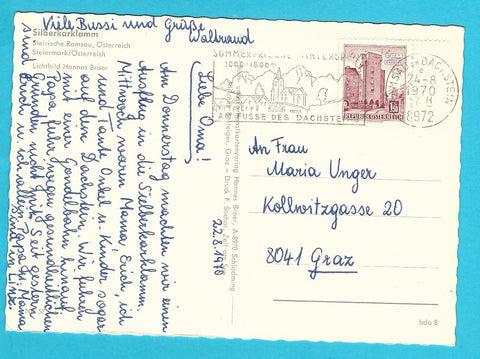 Viele Bussi und Grüße
Waltraud
Silberkarklamm
Steirische Ramsau, Österreich
Steiermark/Österreich
Lichtbild Hannes Broer
22.8.1970
Liebe Oma!
Am Donnerstag machten wir einen
Ausflug in die Silberkarklamm.
Mittwoch waren Mama, Erich, ich
und Tante, Onkel u. Kinder sogar
auf dem Dachstein. Wir fuhren
mit einer Gondelbahn hinauf.
Papa fuhr wegen gesundheitlichen
Gründen nicht mit. Seit gestern
sind Erich u. ich allein, Papa u. Mama
sind in Linz.
SOMMERFRISCHE WINTERSPORT
1000-1800m
AM FUSSE DES DACHSTEIN
DACHSTEIN
24.-8
1970
17 H
8972
REPUBLIK ÖSTERREICH
An Frau
Maria Unger
Kollwitzgasse 20
8041 Graz
Hannes Broer, A-8970 Schladming
bda 8